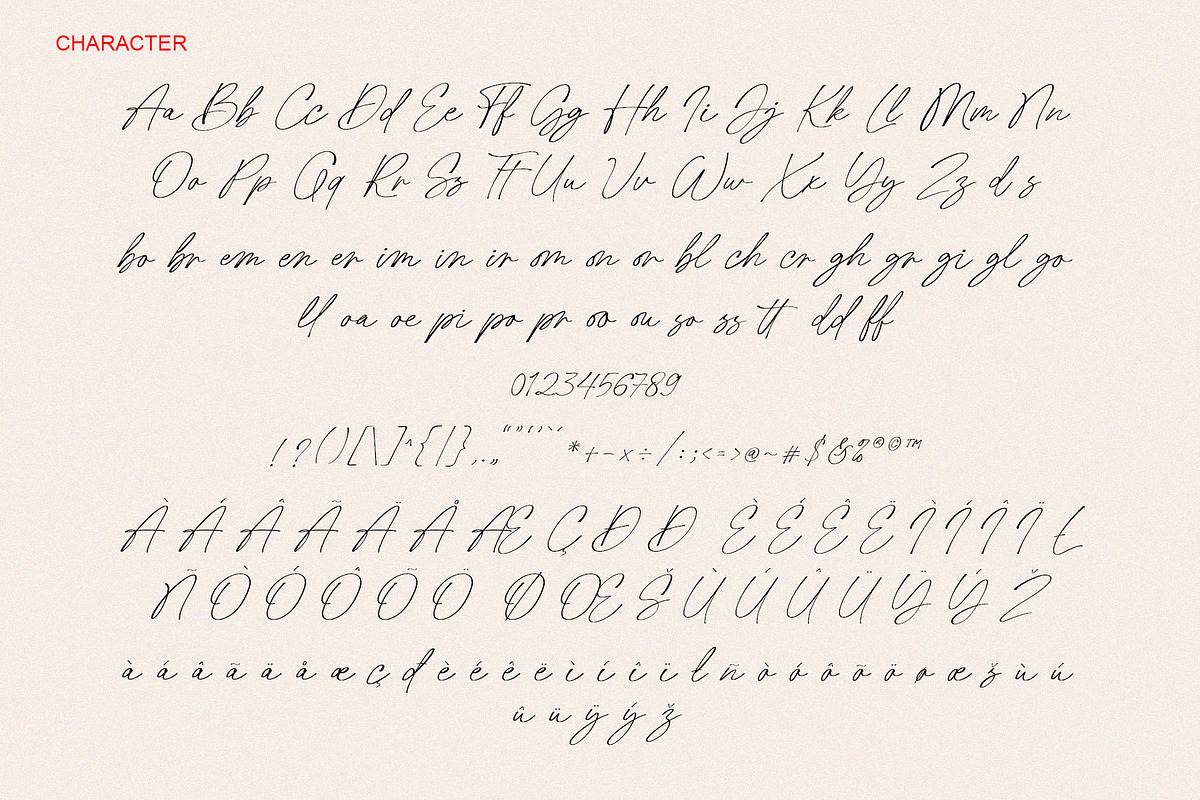 CHARACTER
Aa Bb Cc Dd Ee Ff Gg Hh Ii Jj Kk Ll Mm Nn
Oo Pp Qq Rr Ss Tt Uu Vv Ww Xx Yy Zz d s
bo br em en er im in ir om on or bl ch cr gh gr gi gl go
ll oa oe pi po pr oo ou so ss tt dd ff
0123456789
!?()[\]^{|},.„“”‘’´`*+-×÷/:;<=>@~#$&%®©™
À Á Â Ã Ä Å Æ Ç Ð Đ È É Ê Ë Ì Í Î Ï Ł
Ñ Ò Ó Ô Õ Ö Ø Œ Š Ù Ú Û Ü Ÿ Ý Ž
à á â ã ä å æ ç đ è é ê ë ì í î ï ł ñ ò ó ô õ ö ø œ š ù ú
û ü ÿ ý ž